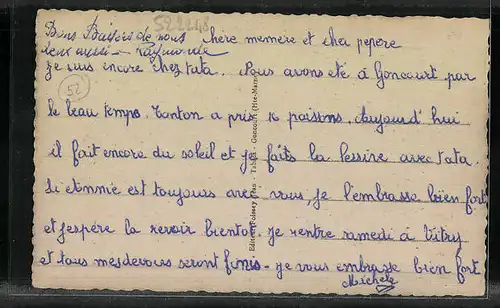 522248
Bons Baisers de nous
deux aussi - Raymonde
chère memere et cher pepere
52
je suis encore chez tata. Nous avons été à Goncourt par
le beau temps. Tonton a pris 16 poisons. Aujourd'hui
il fait encore du soleil et je faits la lessive avec tata.
Si etinnie est toujours avec vous, je l'embrasse bien fort
et j'espère la revoir bientot. je rentre samedi à Vitry
et tous mes devoirs seront finis - je vous embrasse bien fort
Michele
Tabacs - Goncourt (Hte-Marne)